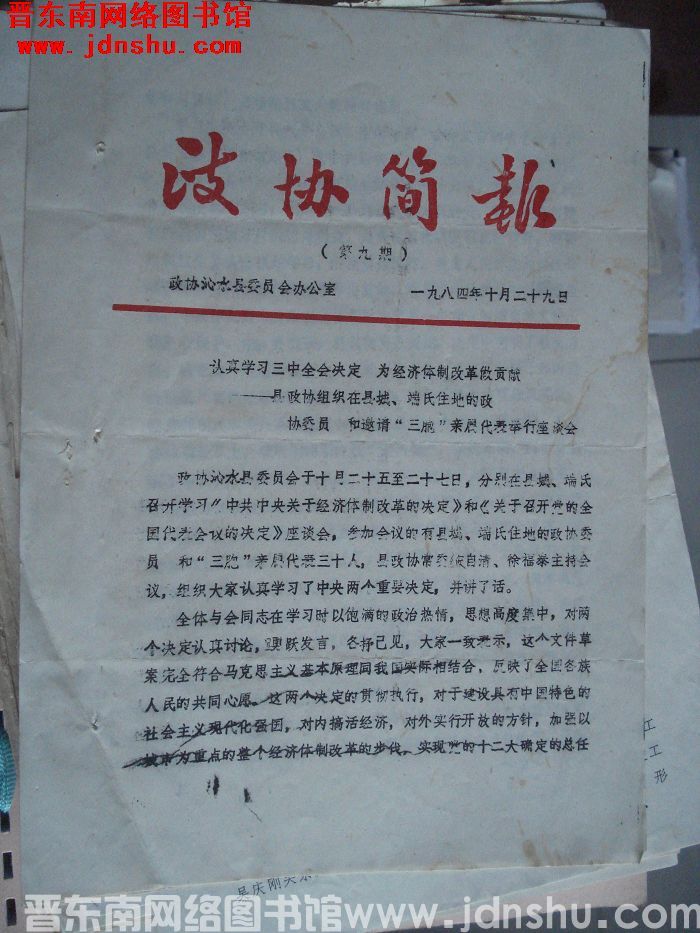 晋东南网络图书馆
www.jdnshu.com
政协简报
（第九期）
政协沁水县委员会办公室 一九八四年十月二十九日
认真学习三中全会决定 为经济体制改革做贡献
——县政协组织在县城、端氏住地的政
协委员 和邀请“三胞”亲属代表举行座谈会
政协沁水县委员会于十月二十五至二十七日，分别在县城、端氏
召开学习《中共中央关于经济体制改革的决定》和《关于召开党的全
国代表会议的决定》座谈会，参加会议的有县城、端氏住地的政协委
员 和“三胞”亲属代表三十人，县政协常委 自清、徐福举主持会
议，组织大家认真学习了中央两个重要决定，并讲了话。
全体与会同志在学习时以饱满的政治热情，思想高度集中，对两
个决定认真讨论，踊跃发言，各抒己见，大家一致表示，这个文件草
案完全符合马克思主义基本原理同我国实际相结合，反映了全国各族
人民的共同心愿。这两个决定的贯彻执行，对于建设具有中国特色的
社会主义现代化强国，对内搞活经济，对外实行开放的方针，加强以
城市为重点的整个经济体制改革的步伐，实现党的十二大确定的总任
江
工
形
吴庆刚
晋东南网络图书馆www.jdnshu.com